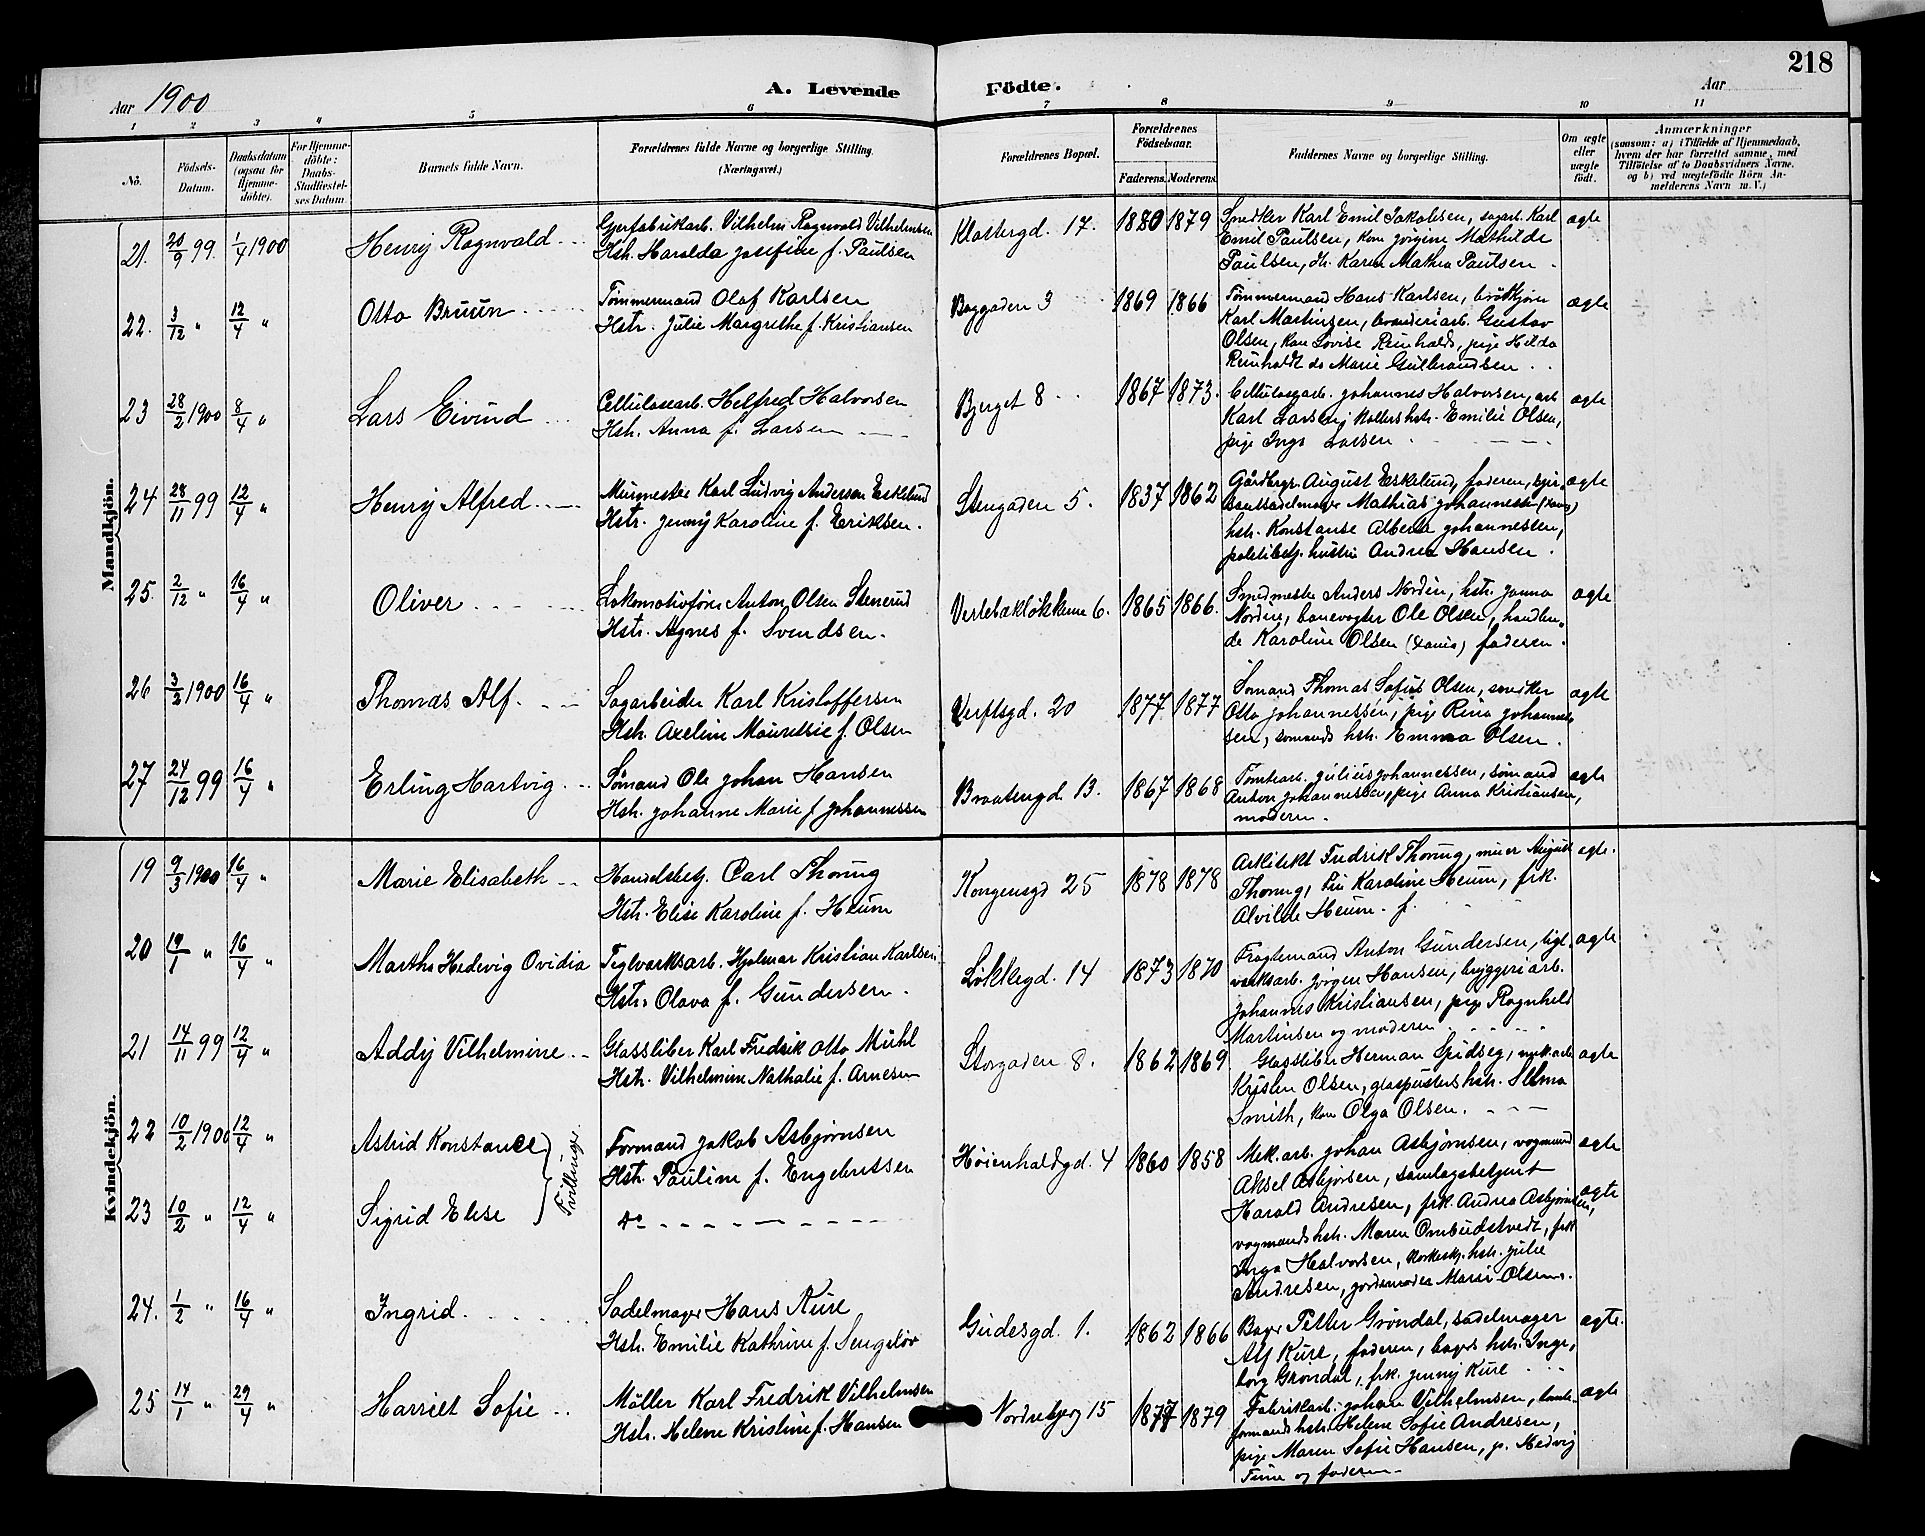 218
Aar 1900
A. Levende Födte.
Aar
1 2 3 4 5 6 7 8 9 10 11
No.
Födsels-Datum.
Daabsdatum (ogsaa for Hjemme-döbte).
For Hjemme-döbte: Daabs-Stadfæstel-ses Datum.
Barnets fulde Navn.
Forældrenes fulde Navne og borgerlige Stilling. (Næringsvei.)
Forældrenes Bopæl.
Forældrenes Födselsaar.
Faderens. Moderens.
Faddernes Navne og borgerlige Stilling.
Om ægte eller uægte födt.
Anmærkninger
(saasom: a) i Tilfælde af Hjemmedaab, hvem der har forrettet samme, med Tilföielse af to Daabsvidners Navne. og b) ved uægtefödte Börn An-melderens Navn m. V.)
Mandkjön.
21. 20/9 99. 1/4 1900 Henry Ragnvald Vilhelm Ragnvald Vilhelmsen Klostergd. 17. 1880 1879 Snedker Karl Emil Jakobsen, sagarb. Karl ægte
Hstr. Haralda Josefine f. Paulsen Emil Paulsen, kone Jørgine Mathilde
Paulsen, Karen Mathea Paulsen
22. 3/12 " 12/4 " Otto Bruun Tømmermand Olaf Karlsen Baggaden 3 1869 1866 Tømmermand Hans Karlsen, ægte
Hstr. Julie Margrethe f. Kristiansen Karl Martinsen, Gustav
Olsen, kone Lovise Reinholdt, pige Hilda
Reinholdt do Marie Gulbrandsen
23 28/2 1900 8/4 " Lars Eivind Cellulosearb. Helfred Halvorsen Bjerget 8 1867 1873. Cellulosearb. Johannes Halvorsen, arb. ægte
Hstr. Anna f. Larsen Karl Larsen, hstr. Emilie Olsen,
pige Inga Larsen
24 28/11 99 12/4 " Henry Alfred Murmester Karl Ludvig Andersen Eskelund Stengaden 5. 1837 1862 Gårdbrgr. August Eskelund, faderen, ægte
Hstr. Jenny Karoline f. Eriksen. Mathias Johannessen
hstr. Konstanse Alberta Johannessen,
politibetj. hustru Andrea Hansen
25. 2/12 " 16/4 " Oliver Lokomotivfører Anton Olsen Stenerud 6. 1865 1866. Smedmester Anders Nordin, hstr. Janna ægte
Hstr. Agnes f. Svendsen. Nordin, banevogter Ole Olsen, handlen-
de Karoline Olsen faderen.
26 3/2 1900 16/4 " Thomas Alf. Sagarbeider Karl Kristoffersen Verftsgd. 20 1877 1877 Sømand Thomas Sofus Olsen, snedker ægte
Hstr. Axeline Mauretsie f. Olsen Otto Johannessen, pige Rina Johannes-
sen, sømands hstr. Emma Olsen.
27 24/12 99 16/4 " Erling Hartvig Sømand Ole Johan Hansen Braatengd. 13. 1867 1868 Tomtearb. Julius Johannessen, sømand ægte
Hstr. Johanne Marie f. Johannessen Anton Johannessen, pige Anna Kristiansen,
moderen.
Kvindekjön.
19 9/3 1900 16/4 " Marie Elisabeth Handelsbetj. Carl Thorüg Kongensgd 25 1878 1878 Arkitekt Fredrik August ægte.
Hstr. Elise Karoline f. Heum Karoline Heum, frk.
Alvilde Heum.
20 19/1 " 16/4 " Martha Hedevig Ovidia Teglværksarb. Hjalmar Kristian Karlsen Løkkegd. 14 1873 1870 Fragtemand Anton Gundersen, tegl- ægte
Hstr. Olava f. Gundersen. værksarb. Jørgen Hansen, bryggeriarb.
Johannes Kristiansen, pige Ragnhild
Martinsen og moderen
21 14/11 99 12/4 " Addy Vilhelmine Glassliber Karl Fredrik Otto Mühl Storgaden 8. 1862 1869 Glassliber Herman ægte
Hstr. Vilhelmine Nathalie f. Arnesen Kristen Olsen, glaspusters hstr. Selma
Smith, kone Olga Olsen.
22 10/2 1900 12/4 " Astrid Konstance Tvillinger. Formand Jakob Asbjørnsen Høienhaldgd. 4 1860 1858 Mek. arb. Johan Asbjørnsen, vognmand ægte
Hstr. Pauline f. Engebretsen Aksel Asbjørsen, samlagsbetjent
23 10/2 " 12/4 " Sigrid Elise do Harald Andresen, frk. Andrea Asbjørnsen, ægte
vognmands hstr. Maren Ombudstvedt, frk.
Inga Halvorsen, hstr. Julie
Andresen, jordemoder Marie Olsen.
24. 1/2 " 16/4 " Ingrid Sadelmager Hans Kure Gudesgd. 1. 1862 1866 Bager Petter Grøndal, sadelmager ægte.
Hstr. Emilie Kathrine f. Sengeløv Alf Kure, faderen, bagers hstr. Inge-
borg Grøndal, frk. Jenny Kure
25 14/1 " 29/4 " Harriet Sofie Møller Karl Fredrik Vilhelmsen Nordrebjerg 15 1877 1879 Fabrikarb. Johan Vilhelmsen, ægte
Hstr. Helene Kristine f. Hansen formands hstr. Helene Sofie Andresen,
pige Maren Sofie Hansen, p. Hedvig
og faderen